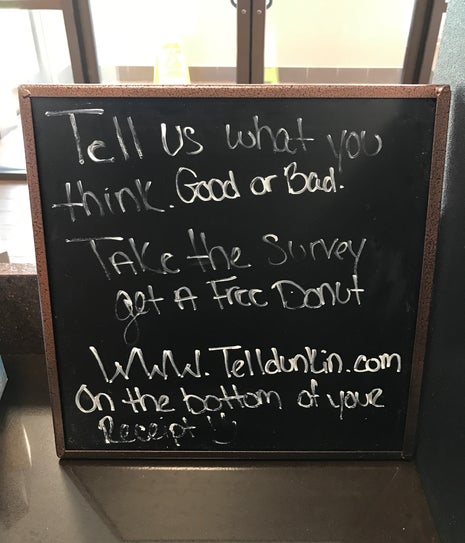 Tell us what you
think. Good or Bad.
Take the Survey
get A Free Donut
WWW.Telldunkin.com
On the bottom of your
Receipt